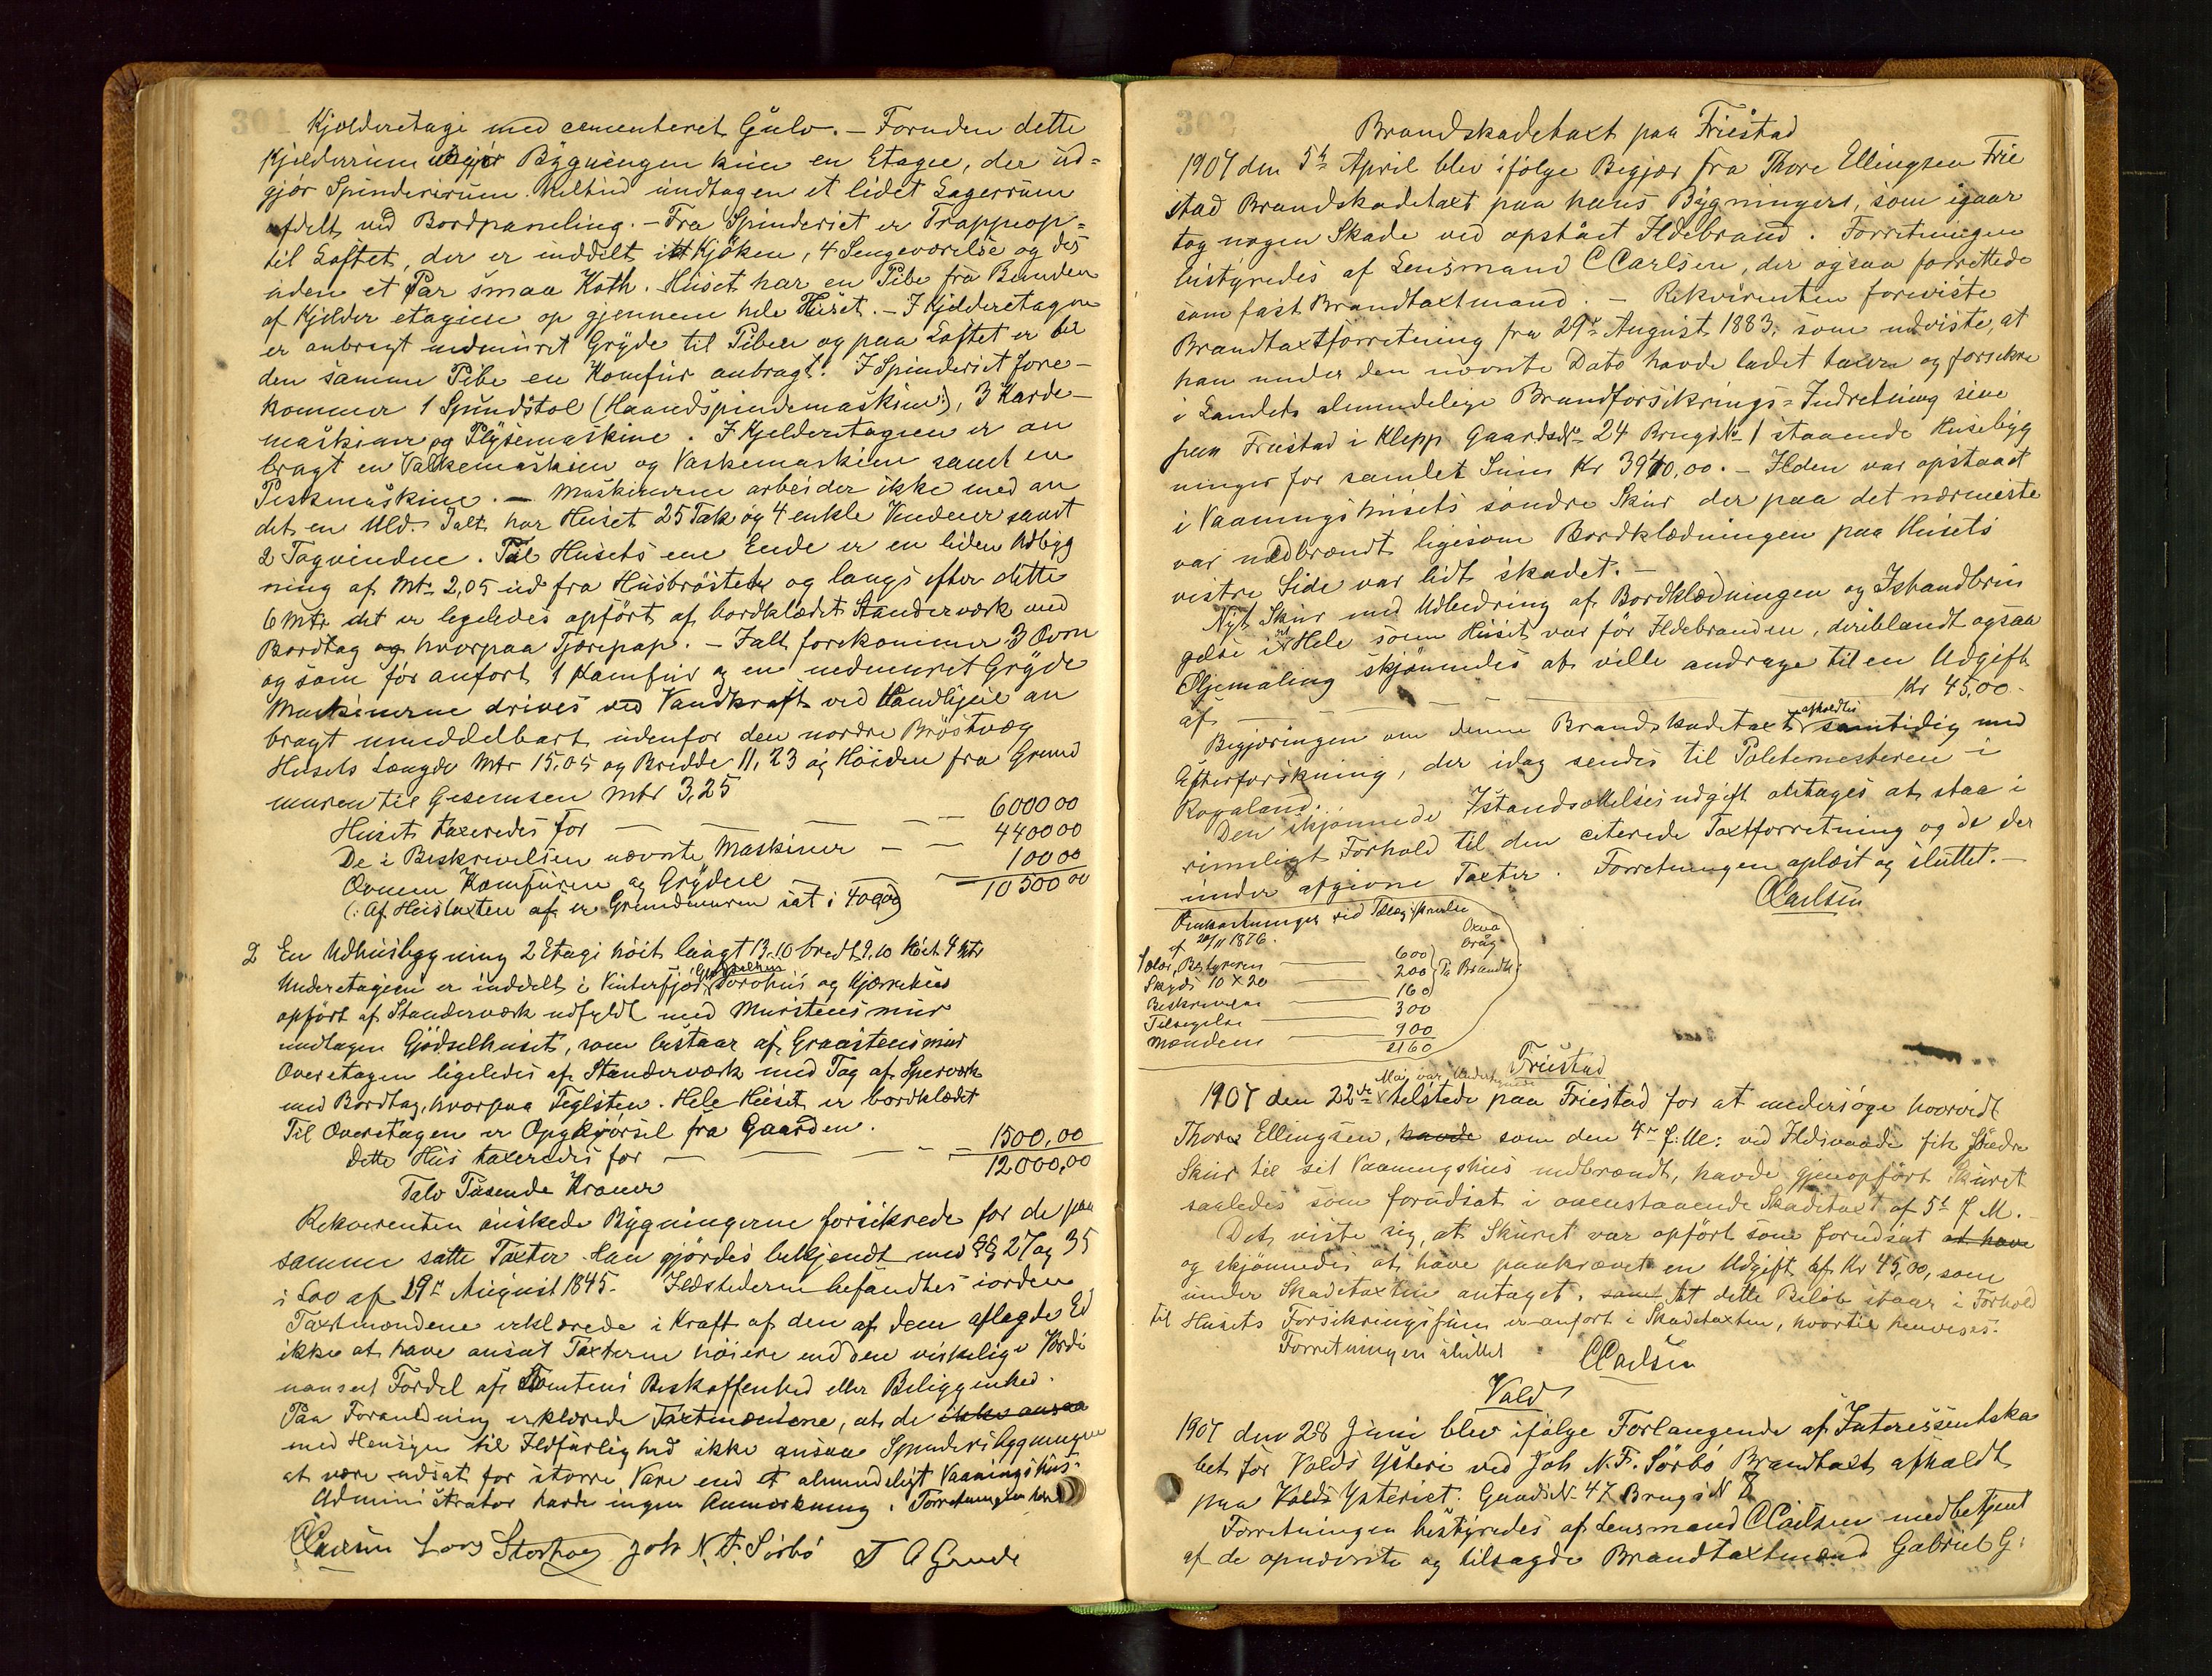 301
Kjælderetage med cementeret Gulv. – Foruden dette
Kjælderrum udgjør Bygningen kun en Etage, der ud=
gjør Spinderirum Heltud undtagen et lidet Lagerrum
afdelt ved Bordpaneling. – Fra Spinderiet er Trappeop=
til Loftet, der er inddelt i et Kjøken, 4 Sengeværelse og des
uden et Par smaa Koth. Huset har en Pibe fra Bunden
af Kjelder etagen op gjennem hele Huset. – I Kjelderetagen
er anbragt nedmuret Gryde til Piben og paa Loftet er ved
den samme Pibe en Komfur anbragt. I Spinderiet fore-
kommer 1 Spindstol (Haandspindemaskine), 3 Karde-
maskiner og Plysemaskine. I Kjelderetagen er an
bragt en Valkemaskine og Vaskemaskine samt en
Peskmaskine. – Maskinerne arbeider ikke med an
det en Uld. Ialt har Huset 25 Tak og 4 enkle Vinduer samt
2 Tagvindue. Paa Husets ene Ende er en liden Udbyg
ning af Mtr 2,05 ud fra Husbrøstet og langs efter dette
6 Mtr det er ligeledes opført af bordklædt Standerværk med
Bordtag og hvorpaa Tjærepap. – Ialt forekommer 3 Ovne
og som før anført 1 Komfur og en nedmuret Gryde
Maskinerne drives ved Vandkraft ved Vandhjul an
bragt umiddelbart udenfor den nordre Brøstvæg
Husets Længde Mtr 15,05 og Bredde 11,23 og Høiden fra Grund
muren til Gesemsen Mtr 3,25
Huset taxeredes for — — — — 6000 00
De i Beskrivelsen nævnte Maskiner — — 4400 00
Ovnene Komfuren og Gryden — — 100 00
(: Af Hustaxten af er Grundmuren sat i 400,00) 10500 00
2 En Udhusbygning 2 Etage høit langt 13.10 bredt 9.10 høit 4 Mtr
Gjødselhus
Underetagen er inddelt i Vinterfjøs, Torvhus og Kjærrehus
opført af Standerværk udfyldt med Murstensmur
undtagen Gjødselhuset, som bestaar af Graastensmur
Overetagen ligeledes af Standerværk med Tag af Sperværk
med Bordtag, hvorpaa Teglsten. Hele Huset er bordklædt
Til Overetagen er Opgkjørsel fra Gaarden.
Dette Hus taxeredes for — — — — 1500,00
12000,00
Tolv Tusende Kroner
Rekvirenten ønskede Bygningerne forsikrede for de paa
samme satte Taxter. Han gjørdes bekjendt med §§ 27 og 35
i Lov af 19de August 1845. Ildstederne befandtes iorden
Taxtmændene erklærede i Kraft af den af dem aflagde Ed
ikke at have ansat Taxterne høiere end den virkelige Værdi
uanseet Fordel af Tomtens Beskaffenhed eller Beliggenhed.
Paa Foranledning erklærede Taxtmændene, at de ikke ansaa
med Hensyn til Ildfarlighed ikke ansaa Spinderibygningen
at være udsat for større Fare end et almindeligt Vaaningshus.
Administrator havde ingen Anmerkning. Forretningen hævet
CCarlsen Lars Storhoug Joh N. F. Sørbø T A Grude
302
Brandskadetaxt paa Friestad
1907 den 5te April blev ifølge Begjær fra Thore Ellingsen Frie
stad Brandskadetaxt paa hans Bygninger, som igaar
tog nogen Skade ved opstået Ildebrand. Forretningen
bestyredes af Lensmand CCarlsen, der ogsaa forrettede
som fast Brandtaxtmand. – Rekvirenten foreviste
Brandtaxtforretning fra 29de August 1883, som udviste, at
han under den nævnte Dato havde ladet taxere og forsikre
i Landets almindelige Brandforsikrings=Indretning sine
paa Friestad i Klepp Gaards No 24 Brugs No 1 staaende Husebyg
ninger for samlet Sum Kr 3940,00. – Ilden var opstaaet
i Vaaningshusets søndre Skur der paa det nærmeste
var nedbrændt ligesom Bordklædningen paa Husets
vestre Side var lidt skadet. –
Nyt Skur med Udbedring af Bordklædningen og Istandbrin
gelse i det Hele som Huset var før Ildebranden, deriblandt ogsaa
Oljemaling skjønnedes at ville andrage til en Udgift
af — — — — Kr 45,00.
afholdtes
Begjæringen om denne Brandskadetaxt samtidig med
Efterforskning, der idag sendes til Politemesteren i
Rogaland.
Den skjønnede Istandsættelsesudgift antages at staa i
rimeligt Forhold til den citerede Taxtforretning og de der
under afgivne Taxter. Forretningen oplæst og sluttet. –
CCarlsen
Omkostninger ved Tillægsforsikr
af 20/11 1876.
Sælær, Bestyreren — 600
Skyds 10 X 20 — 200 To Brandtk:
160
Beskrivelse — 300
Tilsigelse
Mændene — 900
2160
Friestad
Mai var Undertegnede
1907 den 22de tilstede paa Friestad for at undersøge hvorvidt
Thore Ellingsen, havde som den 4de f: M: ved Ildsvaade fik søndre
Skur til sit Vaaningshus nedbrændt, havde gjenopført Skuret
saaledes som forudsat i ovenstaaende Skadetaxt af 5te f M.
Det viste sig, at Skuret var opført som forudsat at have
og skjønnedes at have paakrævet en Udgift af Kr 45,00, som
under Skadetaxten antaget. samt At dette Beløb staar i Forhold
til Husets Forsikringssum er anført i Skadetaxten, hvortil henvises.
Forretningen sluttet CCarlsen
Vold
1907 den 28 Juni blev ifølge Forlangende af Interessentska
bet for Volds Ysteri ved Joh N. F. Sørbø Brandtaxt afholdt
paa Volds Ysteriet. Gaards N. 47 Brugs N 8
Forretningen bestyredes af Lensmand CCarlsen med betjent
af de opnævnte og tilsagde Brandtaxtmænd Gabriel G: